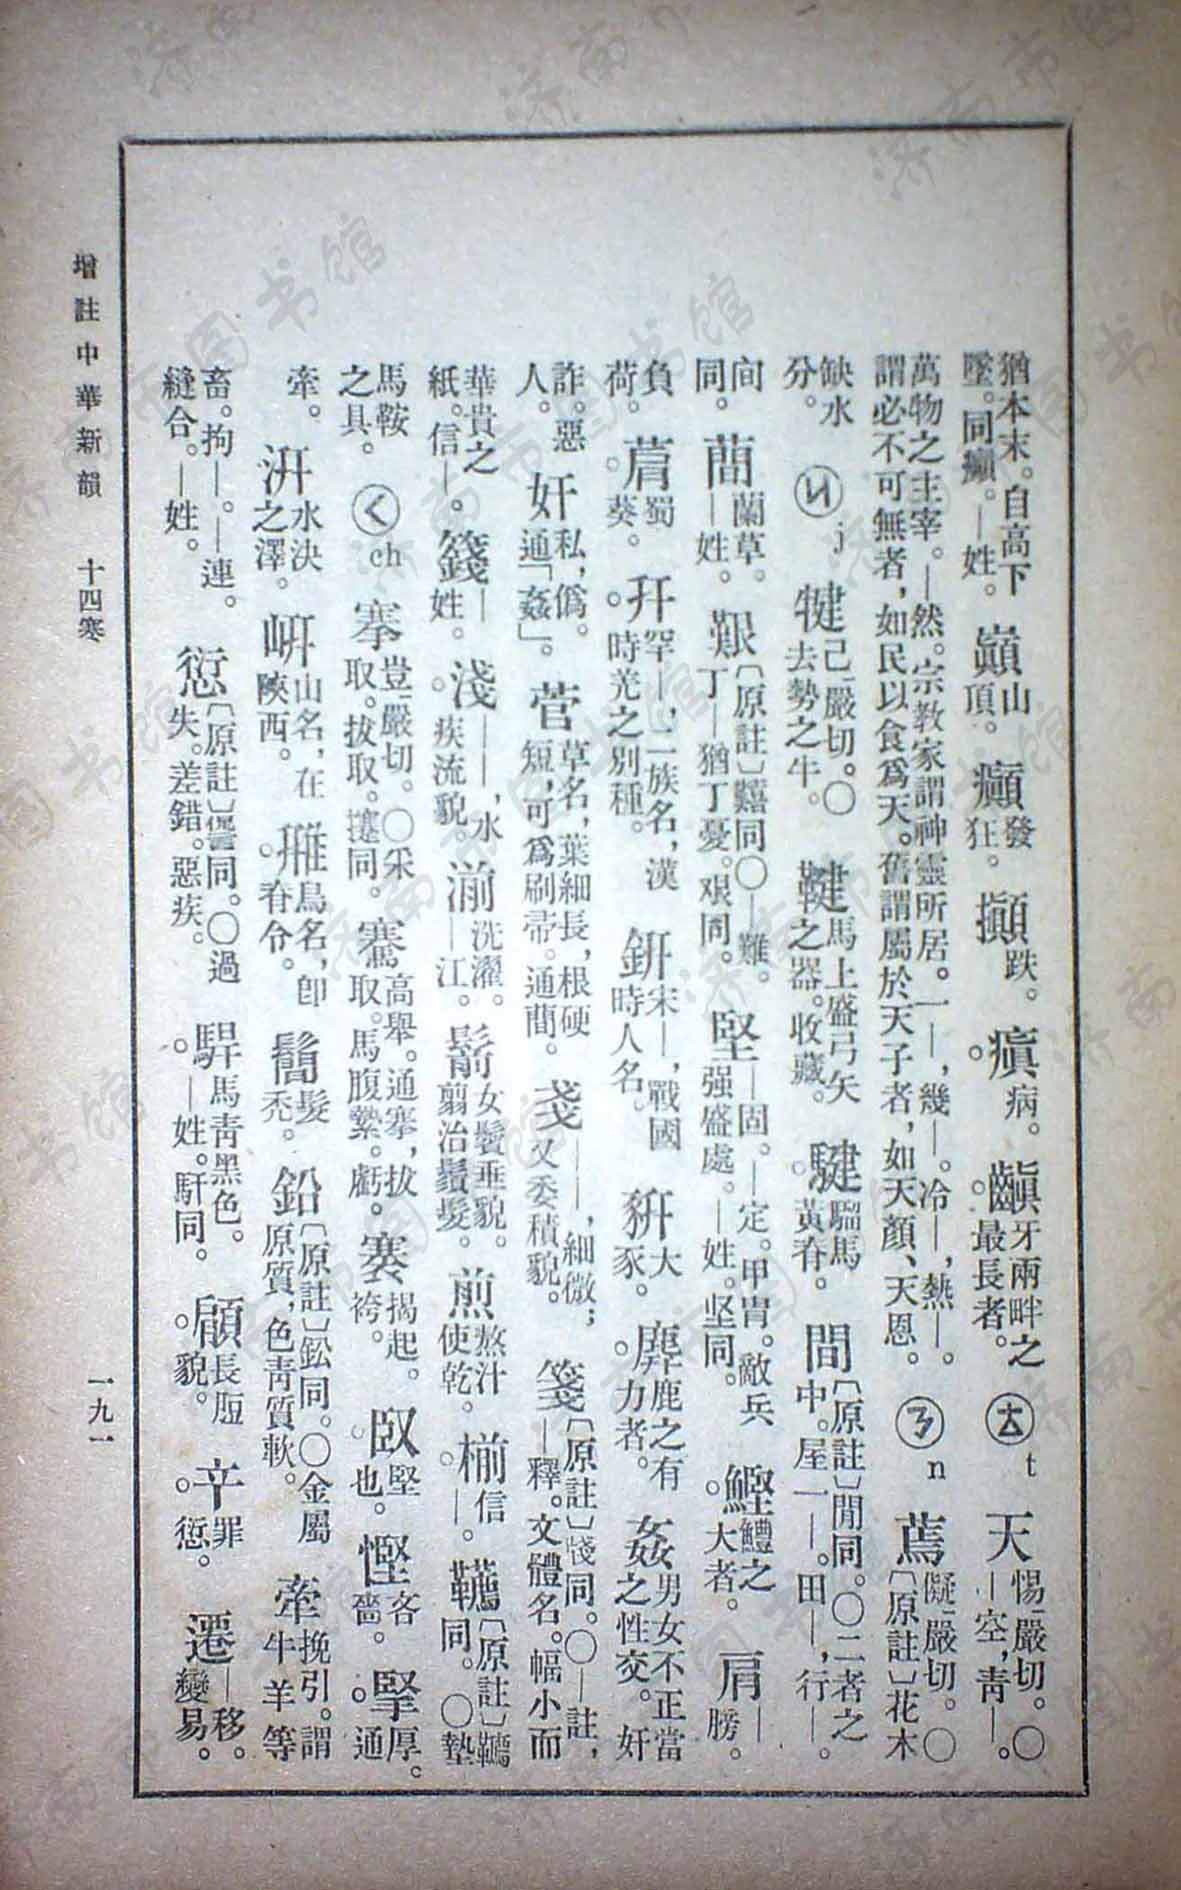 猶本末。自高下墜。同癲。—姓。 巔山頂。 癲發狂。 攧跌。 瘨病。 齻牙兩畔之最長者。 ㄊ t 天惕嚴切。〇—空,青—。
萬物之主宰。—然。宗教家謂神靈所居。一—,幾—。冷—,熱—。謂必不可無者,如民以食爲天。舊謂屬於天子者,如天顏、天恩。 ㄋ n 蔫儗嚴切。〇〔原註〕花木
缺水分。 ㄐ j 犍己嚴切。〇去勢之牛。 鞬馬上盛弓矢之器。收藏。 騝騮馬黃脊。 間〔原註〕閒同。〇二者之中。屋一—。田—,行—。
间同。 蕑蘭草。—姓。 艱〔原註〕囏同〇—難。丁—猶丁憂。艰同。 堅—固。—定。甲冑。敵兵强盛處。—姓。坚同。 鰹鱧之大者。 肩—膀。
負荷。 菺蜀葵。 幵罕—,二族名,漢時光之別種。 鈃宋—,戰國時人名。 豜大豕。 麉鹿之有力者。 姦男女不正當之性交。奸
詐。惡人。 奸私,僞。通「姦」。 菅草名,葉細長,根硬短,可爲刷帚。通蕑。 戔——,細微;又委積貌。 箋〔原註〕牋同。〇—註,—釋。文體名。幅小而
華貴之紙。信—。 籛—姓。 淺——,水疾流貌。 湔洗濯。—江。 鬋女鬢垂貌。翦治鬚髮。 煎熬汁使乾。 椾信—。 韉〔原註〕韀同。〇墊
馬鞍之具。 ㄑ ch 搴豈嚴切。〇采取。拔取。攓同。 騫高舉。通搴,拔取。馬腹縶。虧。 褰揭起。袴。 臤堅也。 慳吝嗇。 掔厚。通
牽。 汧水決之澤。 岍山名,在陝西。 雃鳥名,卽脊令。 鬜髮禿。 鉛〔原註〕鈆同。〇金屬原質,色青質軟。 牽挽引。謂牛羊等
畜。拘—。—連。縫合。—姓。 愆〔原註〕諐同。〇過失。差錯。惡疾。 馬青黑色。—姓。馯同。 顅長脰貌。 䇂罪愆。 遷—移。變易。
增註中華新韻 十四寒 一九一